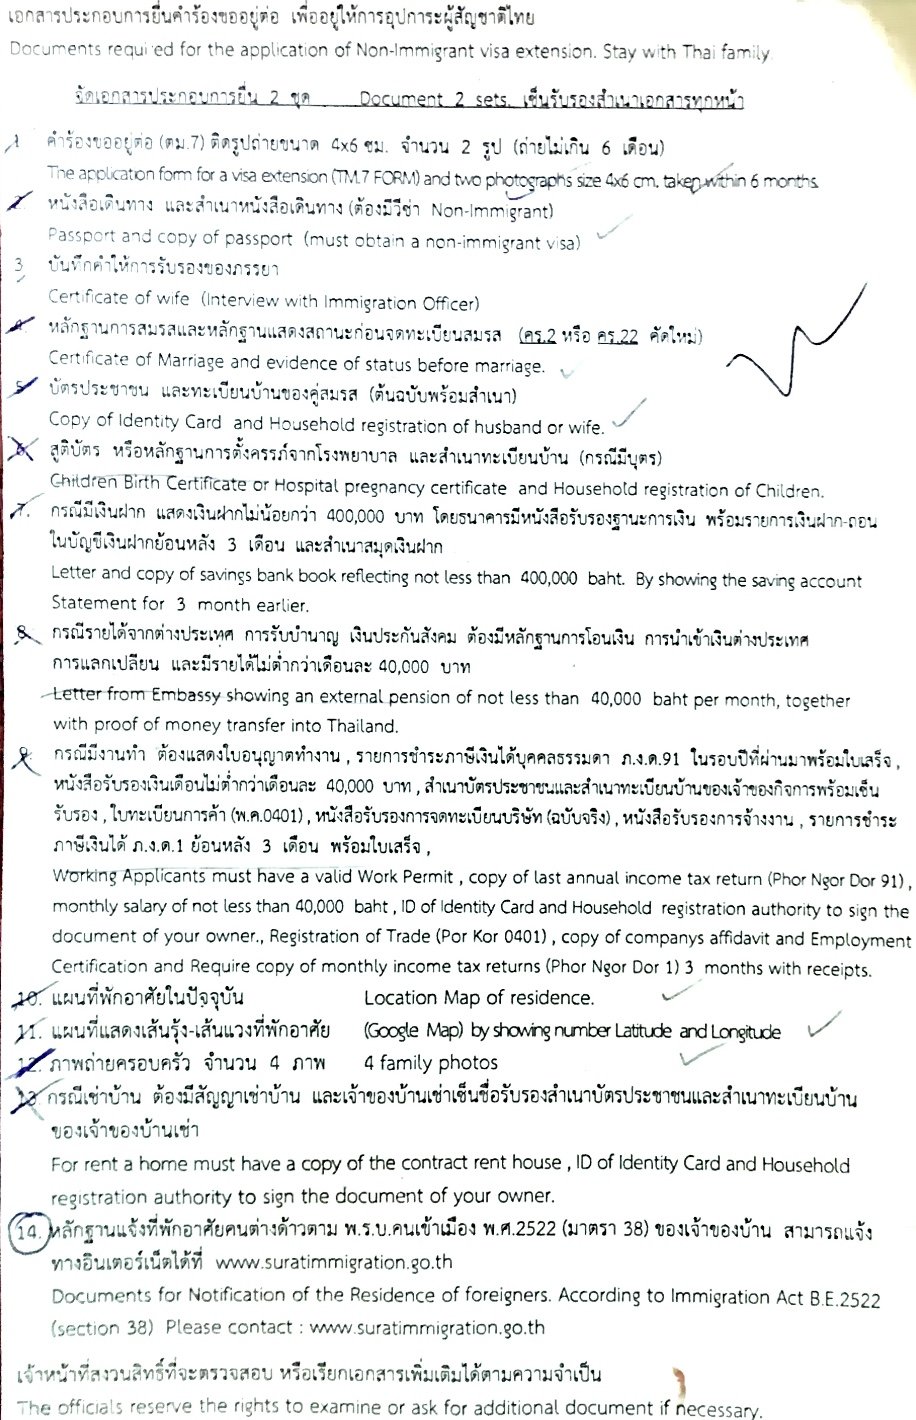 เอกสารประกอบการยื่นคำร้องขออยู่ต่อ เพื่ออยู่ให้การอุปการะผู้สัญชาติไทย
Documents required for the application of Non-Immigrant visa extension. Stay with Thai family.
จัดเอกสารประกอบการยื่น 2 ชุด Document 2 sets. เซ็นรับรองสำเนาเอกสารทุกหน้า
1 คำร้องขออยู่ต่อ (ตม.7) ติดรูปถ่ายขนาด 4x6 ซม. จำนวน 2 รูป (ถ่ายไม่เกิน 6 เดือน)
The application form for a visa extension (TM.7 FORM) and two photographs size 4x6 cm. taken within 6 months.
2 หนังสือเดินทาง และสำเนาหนังสือเดินทาง (ต้องมีวีซ่า Non-Immigrant)
Passport and copy of passport (must obtain a non-immigrant visa)
3 บันทึกคำให้การรับรองของภรรยา
Certificate of wife (Interview with Immigration Officer)
4 หลักฐานการสมรสและหลักฐานแสดงสถานะก่อนจดทะเบียนสมรส (คร.2 หรือ คร.22 คัดใหม่)
Certificate of Marriage and evidence of status before marriage.
5. บัตรประชาชน และทะเบียนบ้านของคู่สมรส (ต้นฉบับพร้อมสำเนา)
Copy of Identity Card and Household registration of husband or wife.
6. สูติบัตร หรือหลักฐานการตั้งครรภ์จากโรงพยาบาล และสำเนาทะเบียนบ้าน (กรณีมีบุตร)
Children Birth Certificate or Hospital pregnancy certificate and Household registration of Children.
7. กรณีมีเงินฝาก แสดงเงินฝากไม่น้อยกว่า 400,000 บาท โดยธนาคารมีหนังสือรับรองฐานะการเงิน พร้อมรายการเงินฝาก-ถอน
ในบัญชีเงินฝากย้อนหลัง 3 เดือน และสำเนาสมุดเงินฝาก
Letter and copy of savings bank book reflecting not less than 400,000 baht. By showing the saving account
Statement for 3 month earlier.
8. กรณีรายได้จากต่างประเทศ การรับบำนาญ เงินประกันสังคม ต้องมีหลักฐานการโอนเงิน การนำเข้าเงินต่างประเทศ
การแลกเปลี่ยน และมีรายได้ไม่ต่ำกว่าเดือนละ 40,000 บาท
Letter from Embassy showing an external pension of not less than 40,000 baht per month, together
with proof of money transfer into Thailand.
9. กรณีมีงานทำ ต้องแสดงใบอนุญาตทำงาน , รายการชำระภาษีเงินได้บุคคลธรรมดา ภ.ง.ด.91 ในรอบปีที่ผ่านมาพร้อมใบเสร็จ ,
หนังสือรับรองเงินเดือนไม่ต่ำกว่าเดือนละ 40,000 บาท , สำเนาบัตรประชาชนและสำเนาทะเบียนบ้านของเจ้าของกิจการพร้อมเซ็น
รับรอง , ใบทะเบียนการค้า (พ.ค.0401) , หนังสือรับรองการจดทะเบียนบริษัท (ฉบับจริง) , หนังสือรับรองการจ้างงาน , รายการชำระ
ภาษีเงินได้ ภ.ง.ด.1 ย้อนหลัง 3 เดือน พร้อมใบเสร็จ ,
Working Applicants must have a valid Work Permit , copy of last annual income tax return (Phor Ngor Dor 91) ,
monthly salary of not less than 40,000 baht , ID of Identity Card and Household registration authority to sign the
document of your owner., Registration of Trade (Por Kor 0401) , copy of companys affidavit and Employment
Certification and Require copy of monthly income tax returns (Phor Ngor Dor 1) 3 months with receipts.
10. แผนที่พักอาศัยในปัจจุบัน Location Map of residence.
11. แผนที่แสดงเส้นรุ้ง-เส้นแวงที่พักอาศัย (Google Map) by showing number Latitude and Longitude
12. ภาพถ่ายครอบครัว จำนวน 4 ภาพ 4 family photos
13 กรณีเช่าบ้าน ต้องมีสัญญาเช่าบ้าน และเจ้าของบ้านเช่าเซ็นชื่อรับรองสำเนาบัตรประชาชนและสำเนาทะเบียนบ้าน
ของเจ้าของบ้านเช่า
For rent a home must have a copy of the contract rent house , ID of Identity Card and Household
registration authority to sign the document of your owner.
14. หลักฐานแจ้งที่พักอาศัยคนต่างด้าวตาม พ.ร.บ.คนเข้าเมือง พ.ศ.2522 (มาตรา 38) ของเจ้าของบ้าน สามารถแจ้ง
ทางอินเตอร์เน็ตได้ที่ www.suratimmigration.go.th
Documents for Notification of the Residence of foreigners. According to Immigration Act B.E.2522
(section 38) Please contact : www.suratimmigration.go.th
เจ้าหน้าที่สงวนสิทธิ์ที่จะตรวจสอบ หรือเรียกเอกสารเพิ่มเติมได้ตามความจำเป็น
The officials reserve the rights to examine or ask for additional document if necessary.